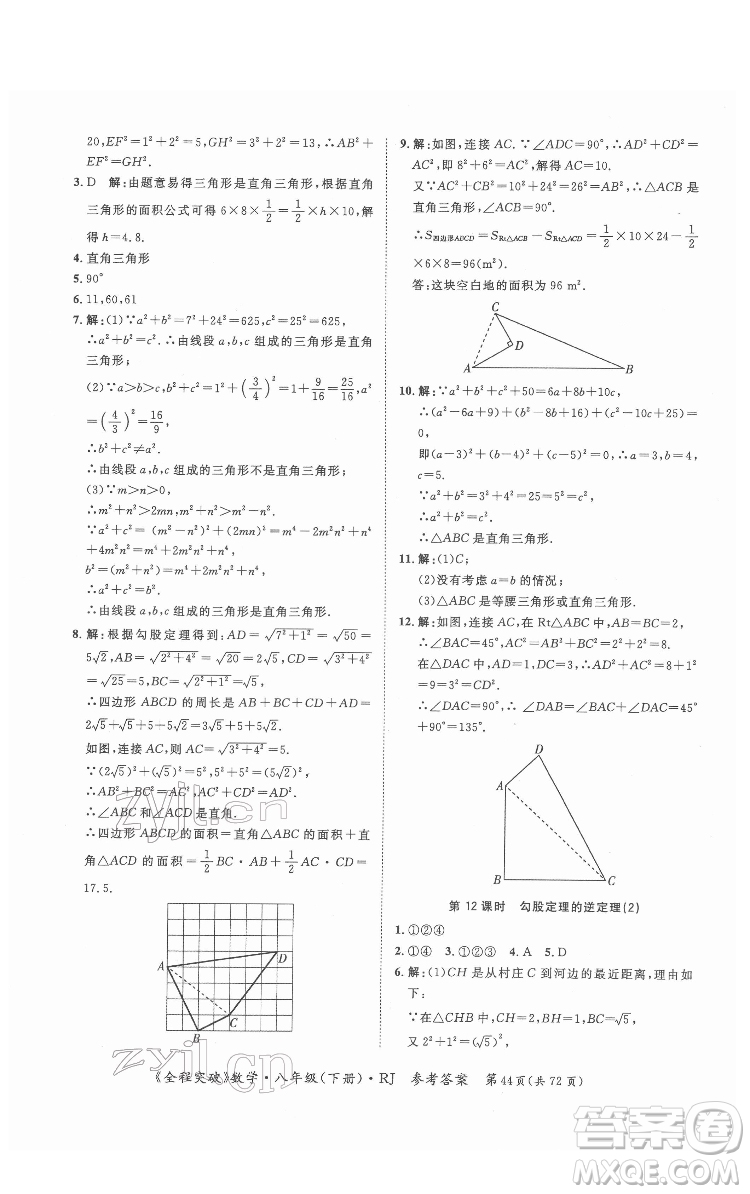 20,EF²=1²+2²=5,GH²=3²+2²=13,∴AB²+
EF²=GH².
3. D 解:由题意易得三角形是直角三角形,根据直角
三角形的面积公式可得 6×8×1/2=h×10×1/2,解
得 h=4.8.
4. 直角三角形
5. 90°
6. 11,60,61
7. 解:(1)∵a²+b²=7²+24²=625,c²=25²=625,
∴a²+b²=c²,∴由线段 a,b,c 组成的三角形是直角
三角形;
(2)∵a>b>c,b²+c²=1²+(3/4)²=1+9/16=25/16,a²
=(4/3)²=16/9,
∴b²+c²≠a²,
∴由线段 a,b,c 组成的三角形不是直角三角形;
(3)∵m>n>0,
∴m²+n²>2mn,m²+n²>m²-n².
∵a²+c²=(2mn)²+(m²-n²)²=m⁴-2m²n²+n⁴
+4m²n²=m⁴+2m²n²+n⁴,
b²=(m²+n²)²=m⁴+2m²n²+n⁴,
∴a²+c²=b²,
∴由线段 a,b,c 组成的三角形是直角三角形.
8. 解:根据勾股定理得到:AD=√(7²+1²)=√50=
5√2,AB=√(2²+4²)=√20=2√5,CD=√(3²+4²)
=√25=5,BC=√(2²+1²)=√5,
∴四边形 ABCD 的周长是 AB+BC+CD+AD=
2√5+√5+5+5√2=3√5+5+5√2.
如图,连接 AC,则 AC=√(3²+4²)=5.
∵(2√5)²+(√5)²=5²,5²+5²=(5√2)²,
∴AB²+BC²=AC²,AC²+CD²=AD²,
∴∠ABC 和∠ACD 是直角.
∴四边形 ABCD 的面积=直角△ABC 的面积+直
角△ACD 的面积=1/2BC·AB+1/2AC·CD=
17.5.
A
B
C
D
9. 解:如图,连接 AC.∵∠ADC=90°,∴AD²+CD²
=AC²,即 8²+6²=AC²,解得 AC=10.
又∵AC²+CB²=10²+24²=26²=AB²,∴△ACB 是
直角三角形,∠ACB=90°.
∴S四边形ADCD=SRt△ACB-SRt△ACD=1/2×10×24-1/2
×6×8=96(m²).
答:这块空白地的面积为 96 m².
C
D
A
B
10. 解:∵a²+b²+c²+50=6a+8b+10c,
∴(a²-6a+9)+(b²-8b+16)+(c²-10c+25)=
0,
即(a-3)²+(b-4)²+(c-5)²=0,∴a=3,b=4,
c=5.
∵a²+b²=3²+4²=25,c²=5²=25,
∴a²+b²=c²,
∴△ABC 是直角三角形.
11. 解:(1)C;
(2)没有考虑 a=b 的情况;
(3)△ABC 是等腰三角形或直角三角形.
12. 解:如图,连接 AC,在 Rt△ABC 中,AB=BC=2,
∴∠BAC=45°,AC²=AB²+BC²=2²+2²=8.
在△DAC 中,∵AD=1,CD=3,∴AC²+AD²=8+1²
=9=3²=CD²,
∴∠DAC=90°,∴∠DAB=∠BAC+∠DAC=45°
+90°=135°.
D
A
B
C
第 12 课时 勾股定理的逆定理(2)
1. ①②④
2. ①④ 3. ①②③④ 4. A 5. D
6. 解:(1)CH 是从村庄 C 到河边的最近距离,理由如
下:
∵在△CHB 中,CH=2,BH=1,BC=√5,
又∵2²+1²=(√5)²,
《全程突破》数学·八年级(下册)·RJ 参考答案 第 44 页(共 72 页)
zyjl.cn
zyjl.cn
答案圈
MXQE.COM